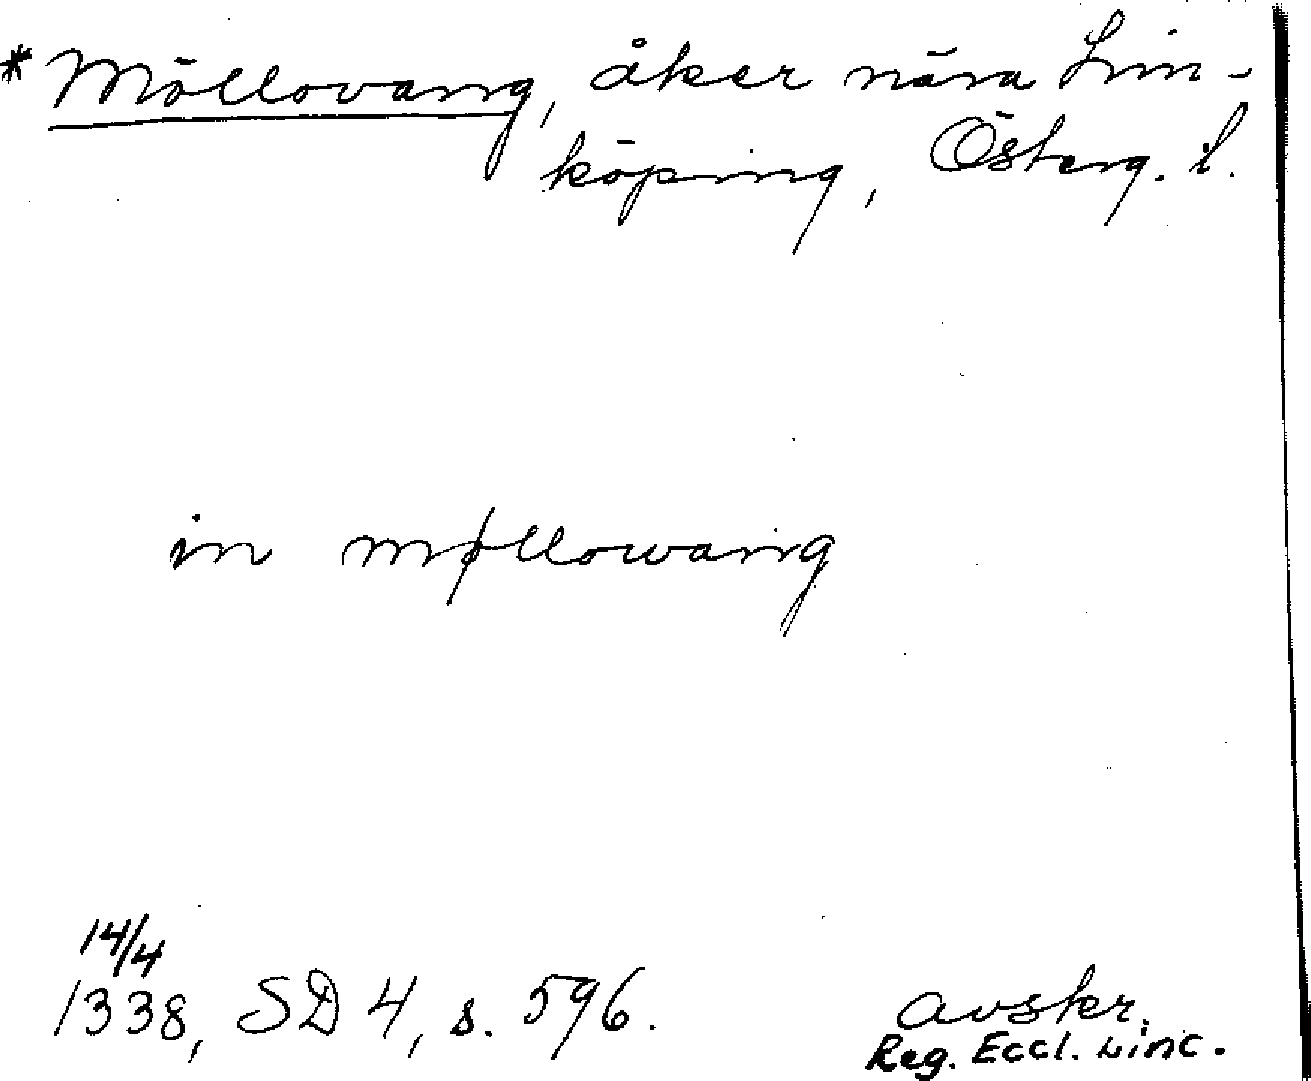 * Möllovang, åker nära Lin-
köping, Österg. l.
in møllowang
14/4
1338, SD 4, s. 596.
avskr.
Reg. Eccl. Linc.